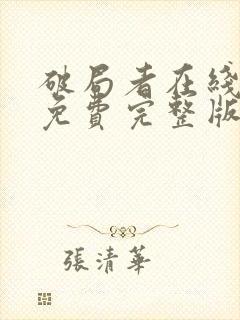 破局者在綫
免費完整版
張清華